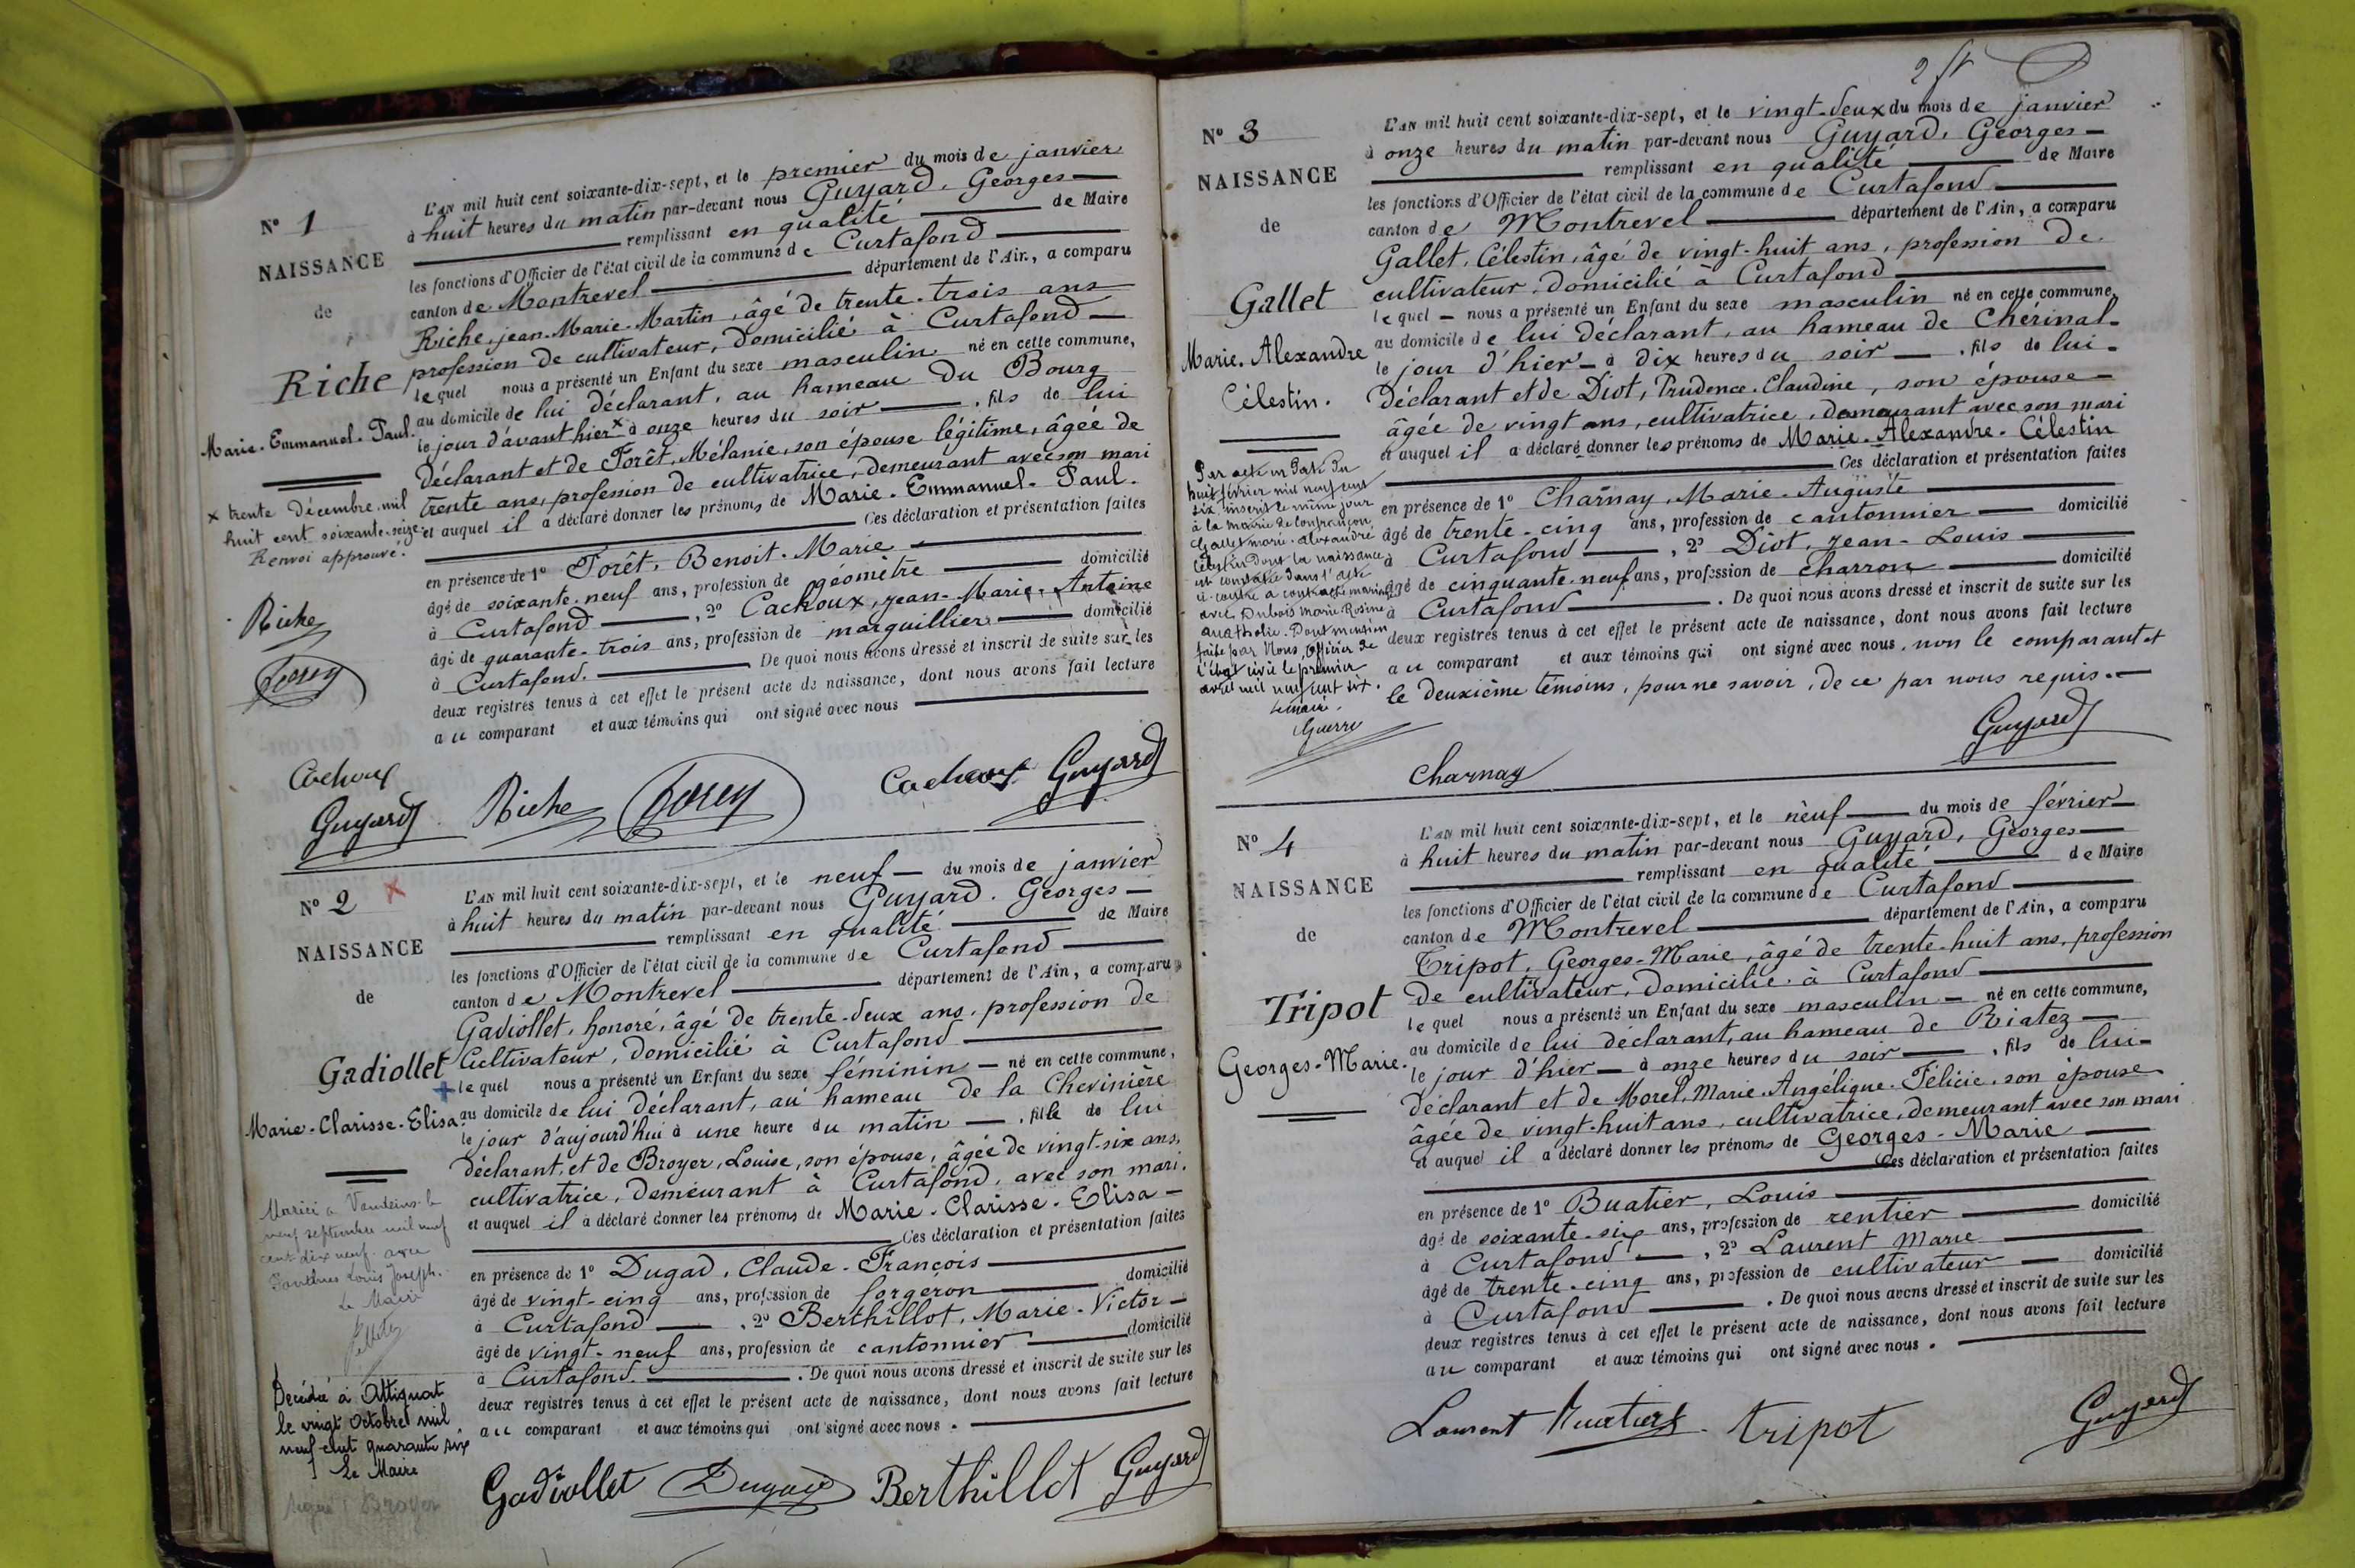 Nº 1
NAISSANCE
de
Riche
Marie-Emmanuel-Paul.
x trente Décembre mil
huit cent soixante-seize.
Renvoi approuvé.
Riche
Cachoux
Guyard
L'AN mil huit cent soixante-dix-sept, et le premier du mois de janvier
à huit heures du matin par-devant nous Guyard, Georges
remplissant en qualité de Maire
les fonctions d'Officier de l'état civil de la commune de Curtafond
canton de Montrevel département de l'Ain, a comparu
Riche, jean-Marie-Martin, âgé de trente-trois ans
profession de cultivateur, domicilié à Curtafond
lequel nous a présenté un Enfant du sexe masculin né en cette commune,
au domicile de lui déclarant, au hameau du Bourg
le jour d'avant hier x à onze heures du soir, fils de lui
déclarant et de Forêt, Mélanie, son épouse légitime, âgée de
trente ans, profession de cultivatrice, demeurant avec son mari
et auquel il a déclaré donner les prénoms de Marie-Emmanuel-Paul.
Ces déclaration et présentation faites
en présence de 1º Forêt, Benoit-Marie
âgé de soixante-neuf ans, profession de géomètre domicilié
à Curtafond, 2º Cachoux, jean-Marie-Antoine
âgé de quarante-trois ans, profession de marguillier domicilié
à Curtafond. De quoi nous avons dressé et inscrit de suite sur les
deux registres tenus à cet effet le présent acte de naissance, dont nous avons fait lecture
au comparant et aux témoins qui ont signé avec nous
Riche Forey Cachoux Guyard
Nº 2
NAISSANCE
de
Gadiollet
Marie-Clarisse-Elisa.
Mariée à Vandeins le
neuf septembre mil neuf
cent dix neuf avec
Louis Joseph.
Le Maire
Décédée à Attignat
le vingt Octobre mil
neuf cent quarante six
Le Maire
signé: Broyer
L'AN mil huit cent soixante-dix-sept, et le neuf du mois de janvier
à huit heures du matin par-devant nous Guyard. Georges
remplissant en qualité de Maire
les fonctions d'Officier de l'état civil de la commune de Curtafond
canton de Montrevel département de l'Ain, a comparu
Gadiollet, honoré, âgé de trente-deux ans, profession de
Cultivateur, domicilié à Curtafond
lequel nous a présenté un Enfant du sexe féminin né en cette commune,
au domicile de lui déclarant, au hameau de la Chevinière
le jour d'aujourd'hui à une heure du matin, fille de lui
déclarant, et de Broyer, Louise, son épouse, âgée de vingt-six ans,
cultivatrice, demeurant à Curtafond, avec son mari.
et auquel il a déclaré donner les prénoms de Marie-Clarisse-Elisa
Ces déclaration et présentation faites
en présence de 1º Dugad, Claude-François
âgé de vingt-cinq ans, profession de forgeron domicilié
à Curtafond, 2º Berthillot, Marie-Victor
âgé de vingt-neuf ans, profession de cantonnier domicilié
à Curtafond. De quoi nous avons dressé et inscrit de suite sur les
deux registres tenus à cet effet le présent acte de naissance, dont nous avons fait lecture
au comparant et aux témoins qui ont signé avec nous.
Gadiollet Dugad Berthillot Guyard
Nº 3
NAISSANCE
de
Gallet
Marie-Alexandre
Célestin.
Par acte en date du
huit février mil neuf cent
six, inscrit le même jour
à la mairie de Confrançon,
Gallet marie-alexandre
Célestin dont la naissance
est constatée dans l'acte
ci-contre a contracté mariage
avec Dubois Marie-Rosine
anathalie. Dont mention
faite par Nous, Officier de
l'état civil le premier
avril mil neuf cent six.
Le maire.
Guerre
L'AN mil huit cent soixante-dix-sept, et le vingt-deux du mois de janvier
à onze heures du matin par-devant nous Guyard, Georges
remplissant en qualité de Maire
les fonctions d'Officier de l'état civil de la commune de Curtafond
canton de Montrevel département de l'Ain, a comparu
Gallet, Célestin, âgé de vingt-huit ans, profession de
cultivateur, domicilié à Curtafond
lequel nous a présenté un Enfant du sexe masculin né en cette commune,
au domicile de lui déclarant, au hameau de Cherinal
le jour d'hier à dix heures du soir, fils de lui
déclarant et de Diot, Prudence-Claudine, son épouse
âgée de vingt ans, cultivatrice, demeurant avec son mari
et auquel il a déclaré donner les prénoms de Marie-Alexandre-Célestin
Ces déclaration et présentation faites
en présence de 1º Charnay, Marie-Auguste
âgé de trente-cinq ans, profession de cantonnier domicilié
à Curtafond, 2º Diot, jean-Louis
âgé de cinquante-neuf ans, profession de charron domicilié
à Curtafond. De quoi nous avons dressé et inscrit de suite sur les
deux registres tenus à cet effet le présent acte de naissance, dont nous avons fait lecture
au comparant et aux témoins qui ont signé avec nous, non le comparant et
le deuxième témoins, pour ne savoir, de ce par nous requis.
Charnay Guyard
Nº 4
NAISSANCE
de
Tripot
Georges-Marie.
L'AN mil huit cent soixante-dix-sept, et le neuf du mois de février
à huit heures du matin par-devant nous Guyard, Georges
remplissant en qualité de Maire
les fonctions d'Officier de l'état civil de la commune de Curtafond
canton de Montrevel département de l'Ain, a comparu
Tripot, Georges-Marie, âgé de trente-huit ans, profession
de cultivateur, domicilié à Curtafond
lequel nous a présenté un Enfant du sexe masculin né en cette commune,
au domicile de lui déclarant, au hameau de Biatez
le jour d'hier à onze heures du soir, fils de lui
déclarant et de Morel, Marie-Angélique-Félicie, son épouse
âgée de vingt-huit ans, cultivatrice, demeurant avec son mari
et auquel il a déclaré donner les prénoms de Georges-Marie
Ces déclaration et présentation faites
en présence de 1º Buatier, Louis
âgé de soixante-six ans, profession de rentier domicilié
à Curtafond, 2º Laurent Marie
âgé de trente-cinq ans, profession de cultivateur domicilié
à Curtafond. De quoi nous avons dressé et inscrit de suite sur les
deux registres tenus à cet effet le présent acte de naissance, dont nous avons fait lecture
au comparant et aux témoins qui ont signé avec nous.
Laurent Buatier tripot Guyard